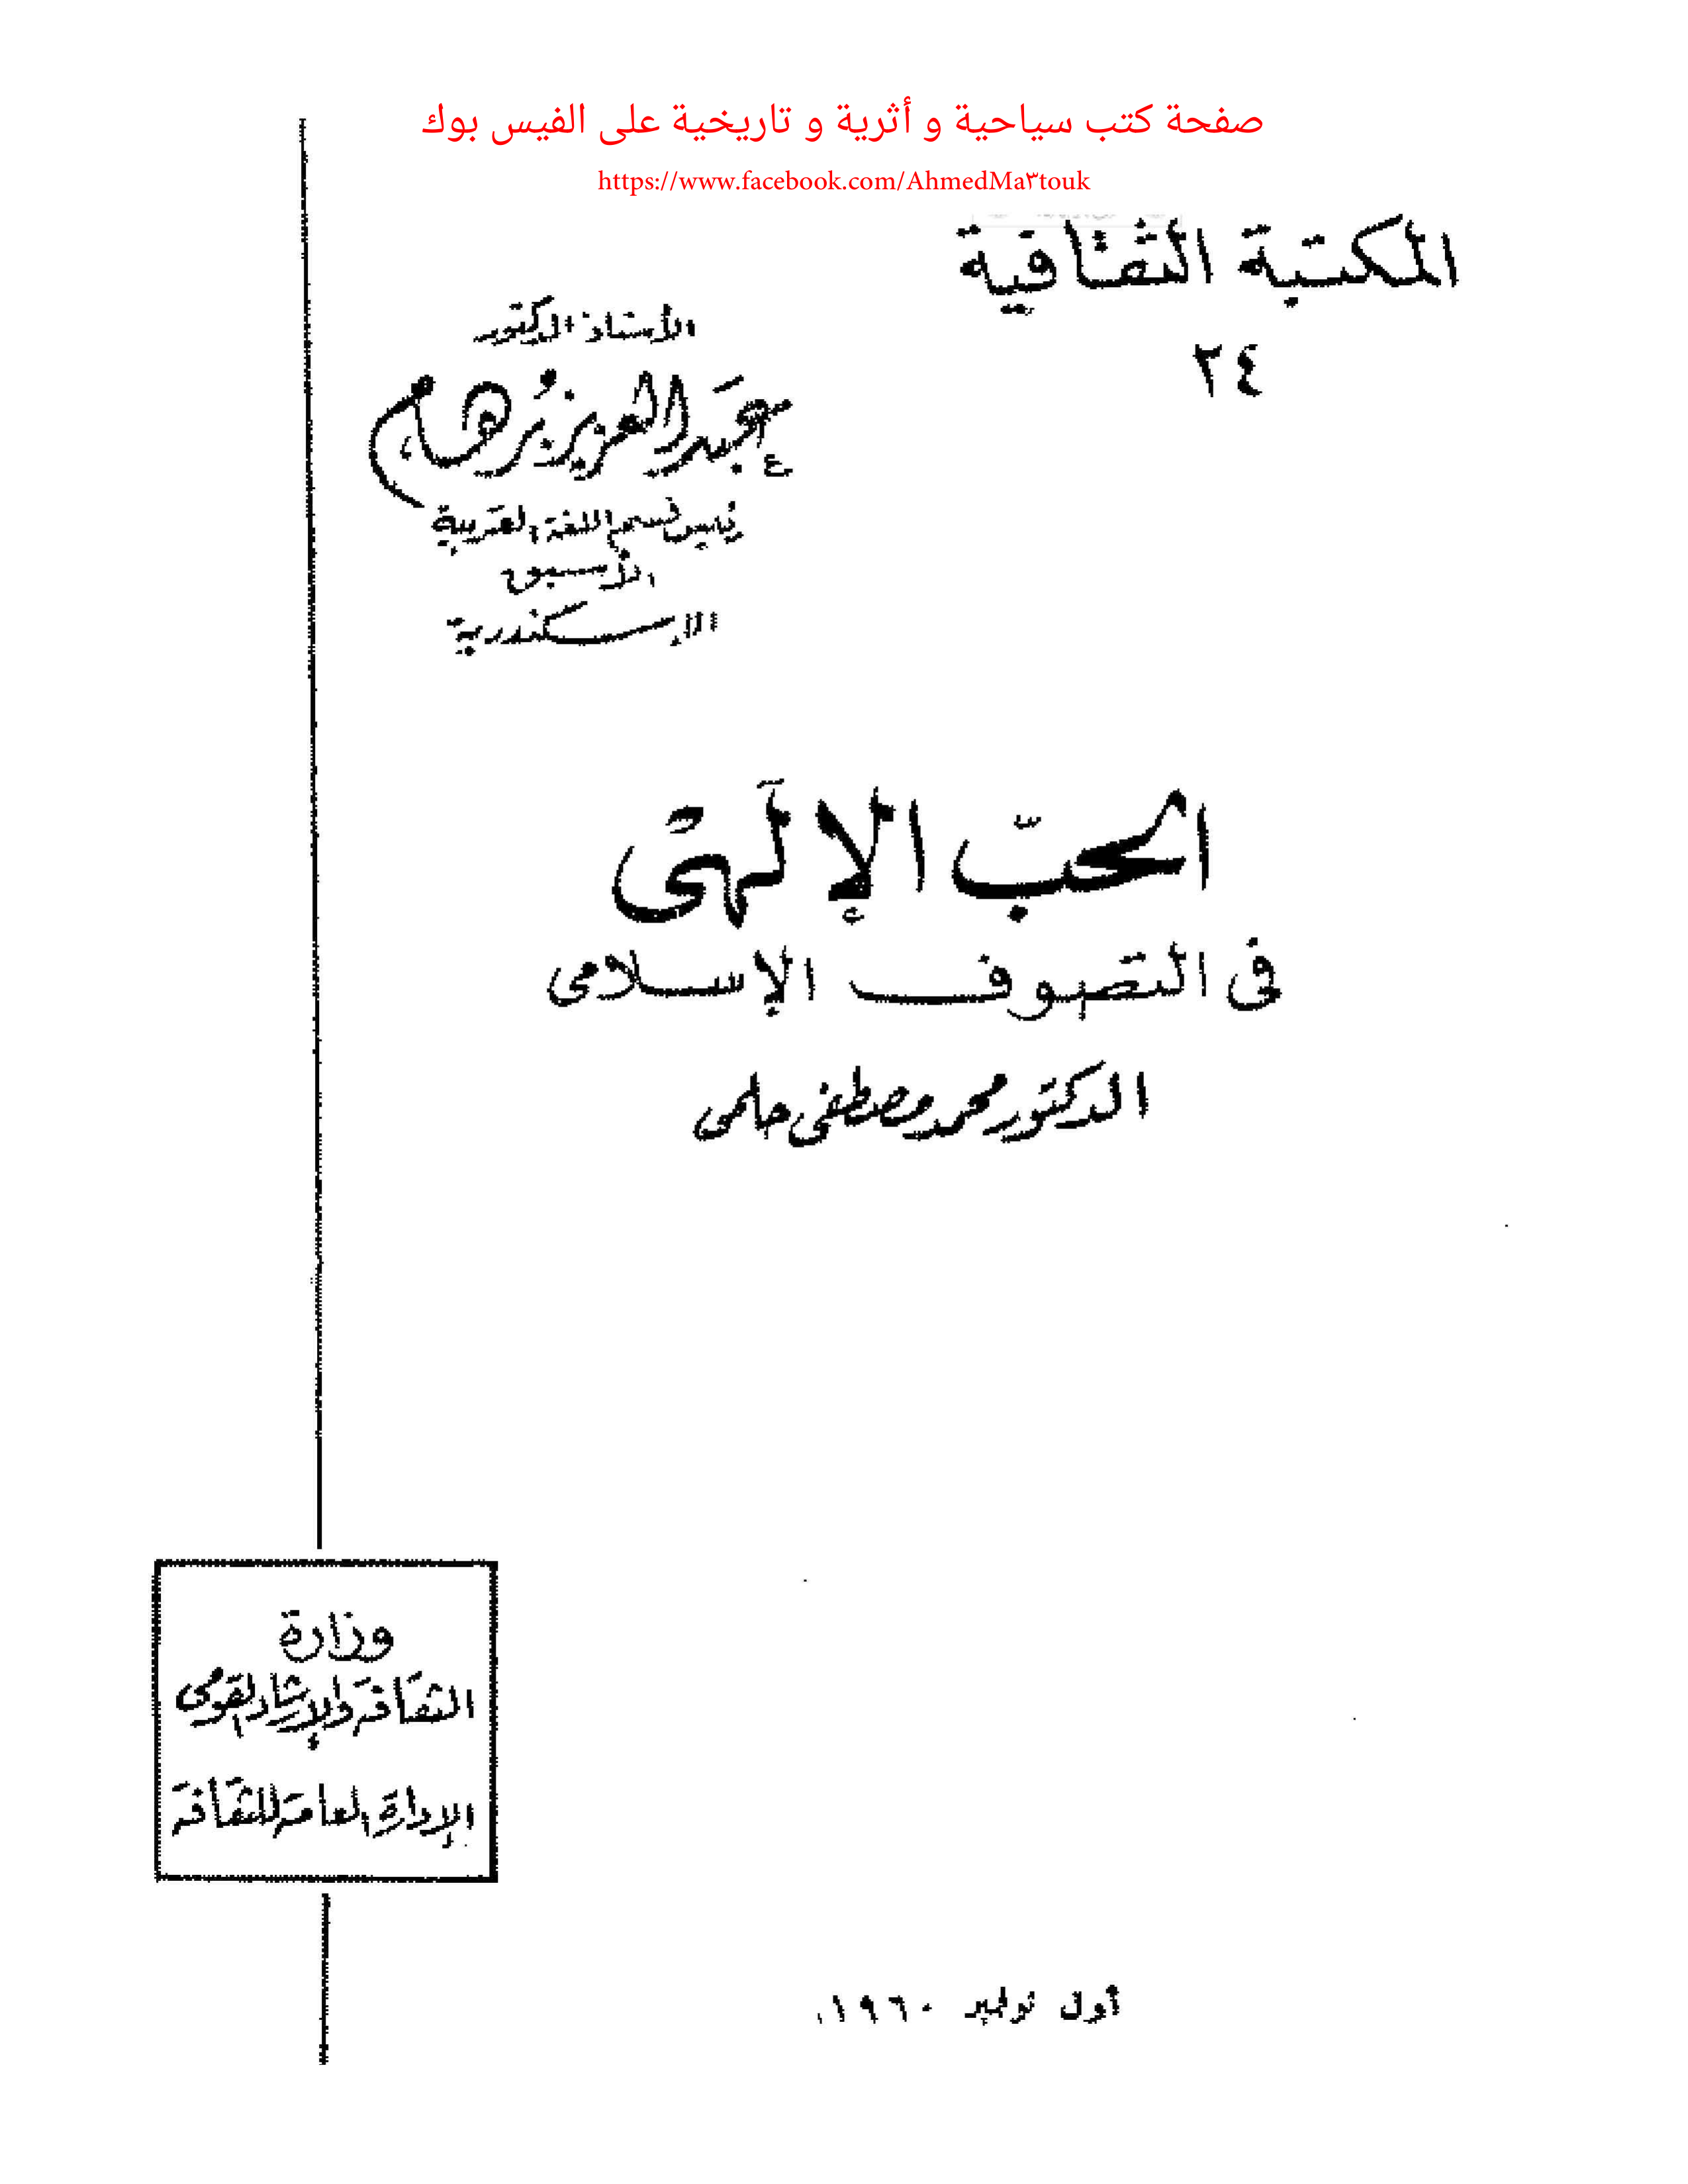 صفحة كتب سياحية و أثرية و تاريخية على الفيس بوك
https://www.facebook.com/AhmedMa٣touk
المكتبة الثقافية
٢٤
الأستاذ الدكتور
عبد العزيز برهام
رئيس قسم اللغة العربية
الأسبق
الإسكندرية
الحبّ الإلٰهى
فى التصوف الإسلامى
الدكتور محمد مصطفى حلمى
وزارة
الثقافة والإرشاد القومى
الإدارة العامة للثقافة
أول نوفمبر ١٩٦٠